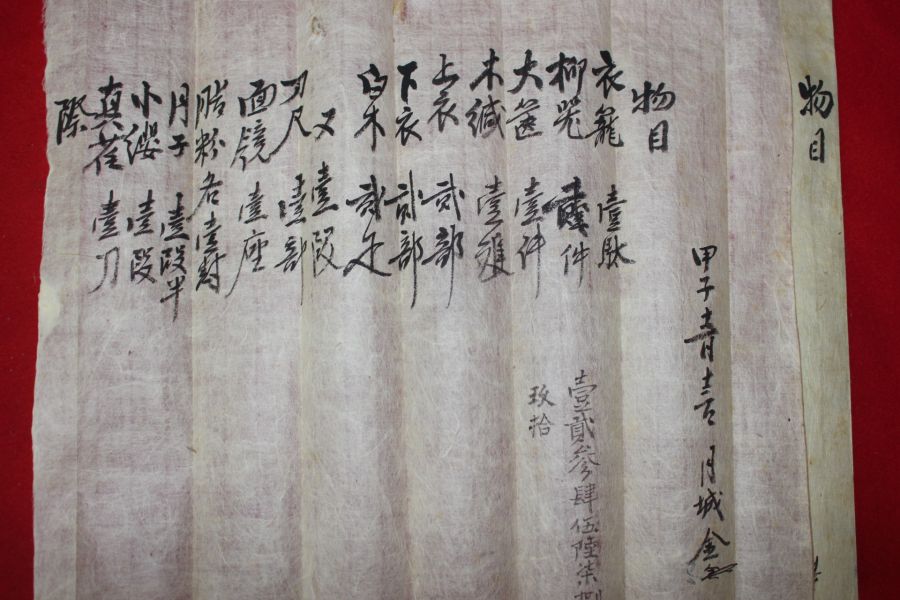 物目
甲子 月城金
物目
衣籠 壹馱
柳笼 件
大篋 壹件
木緘 壹雙
上衣 貳部
下衣 貳部
白木 貳疋
又 壹段
刀尺 壹部
面镜 壹座
脂粉 各壹封
月子 壹段半
小纓 壹段
真荏 壹刀
際
壹貳參肆伍陸柒捌
玖拾